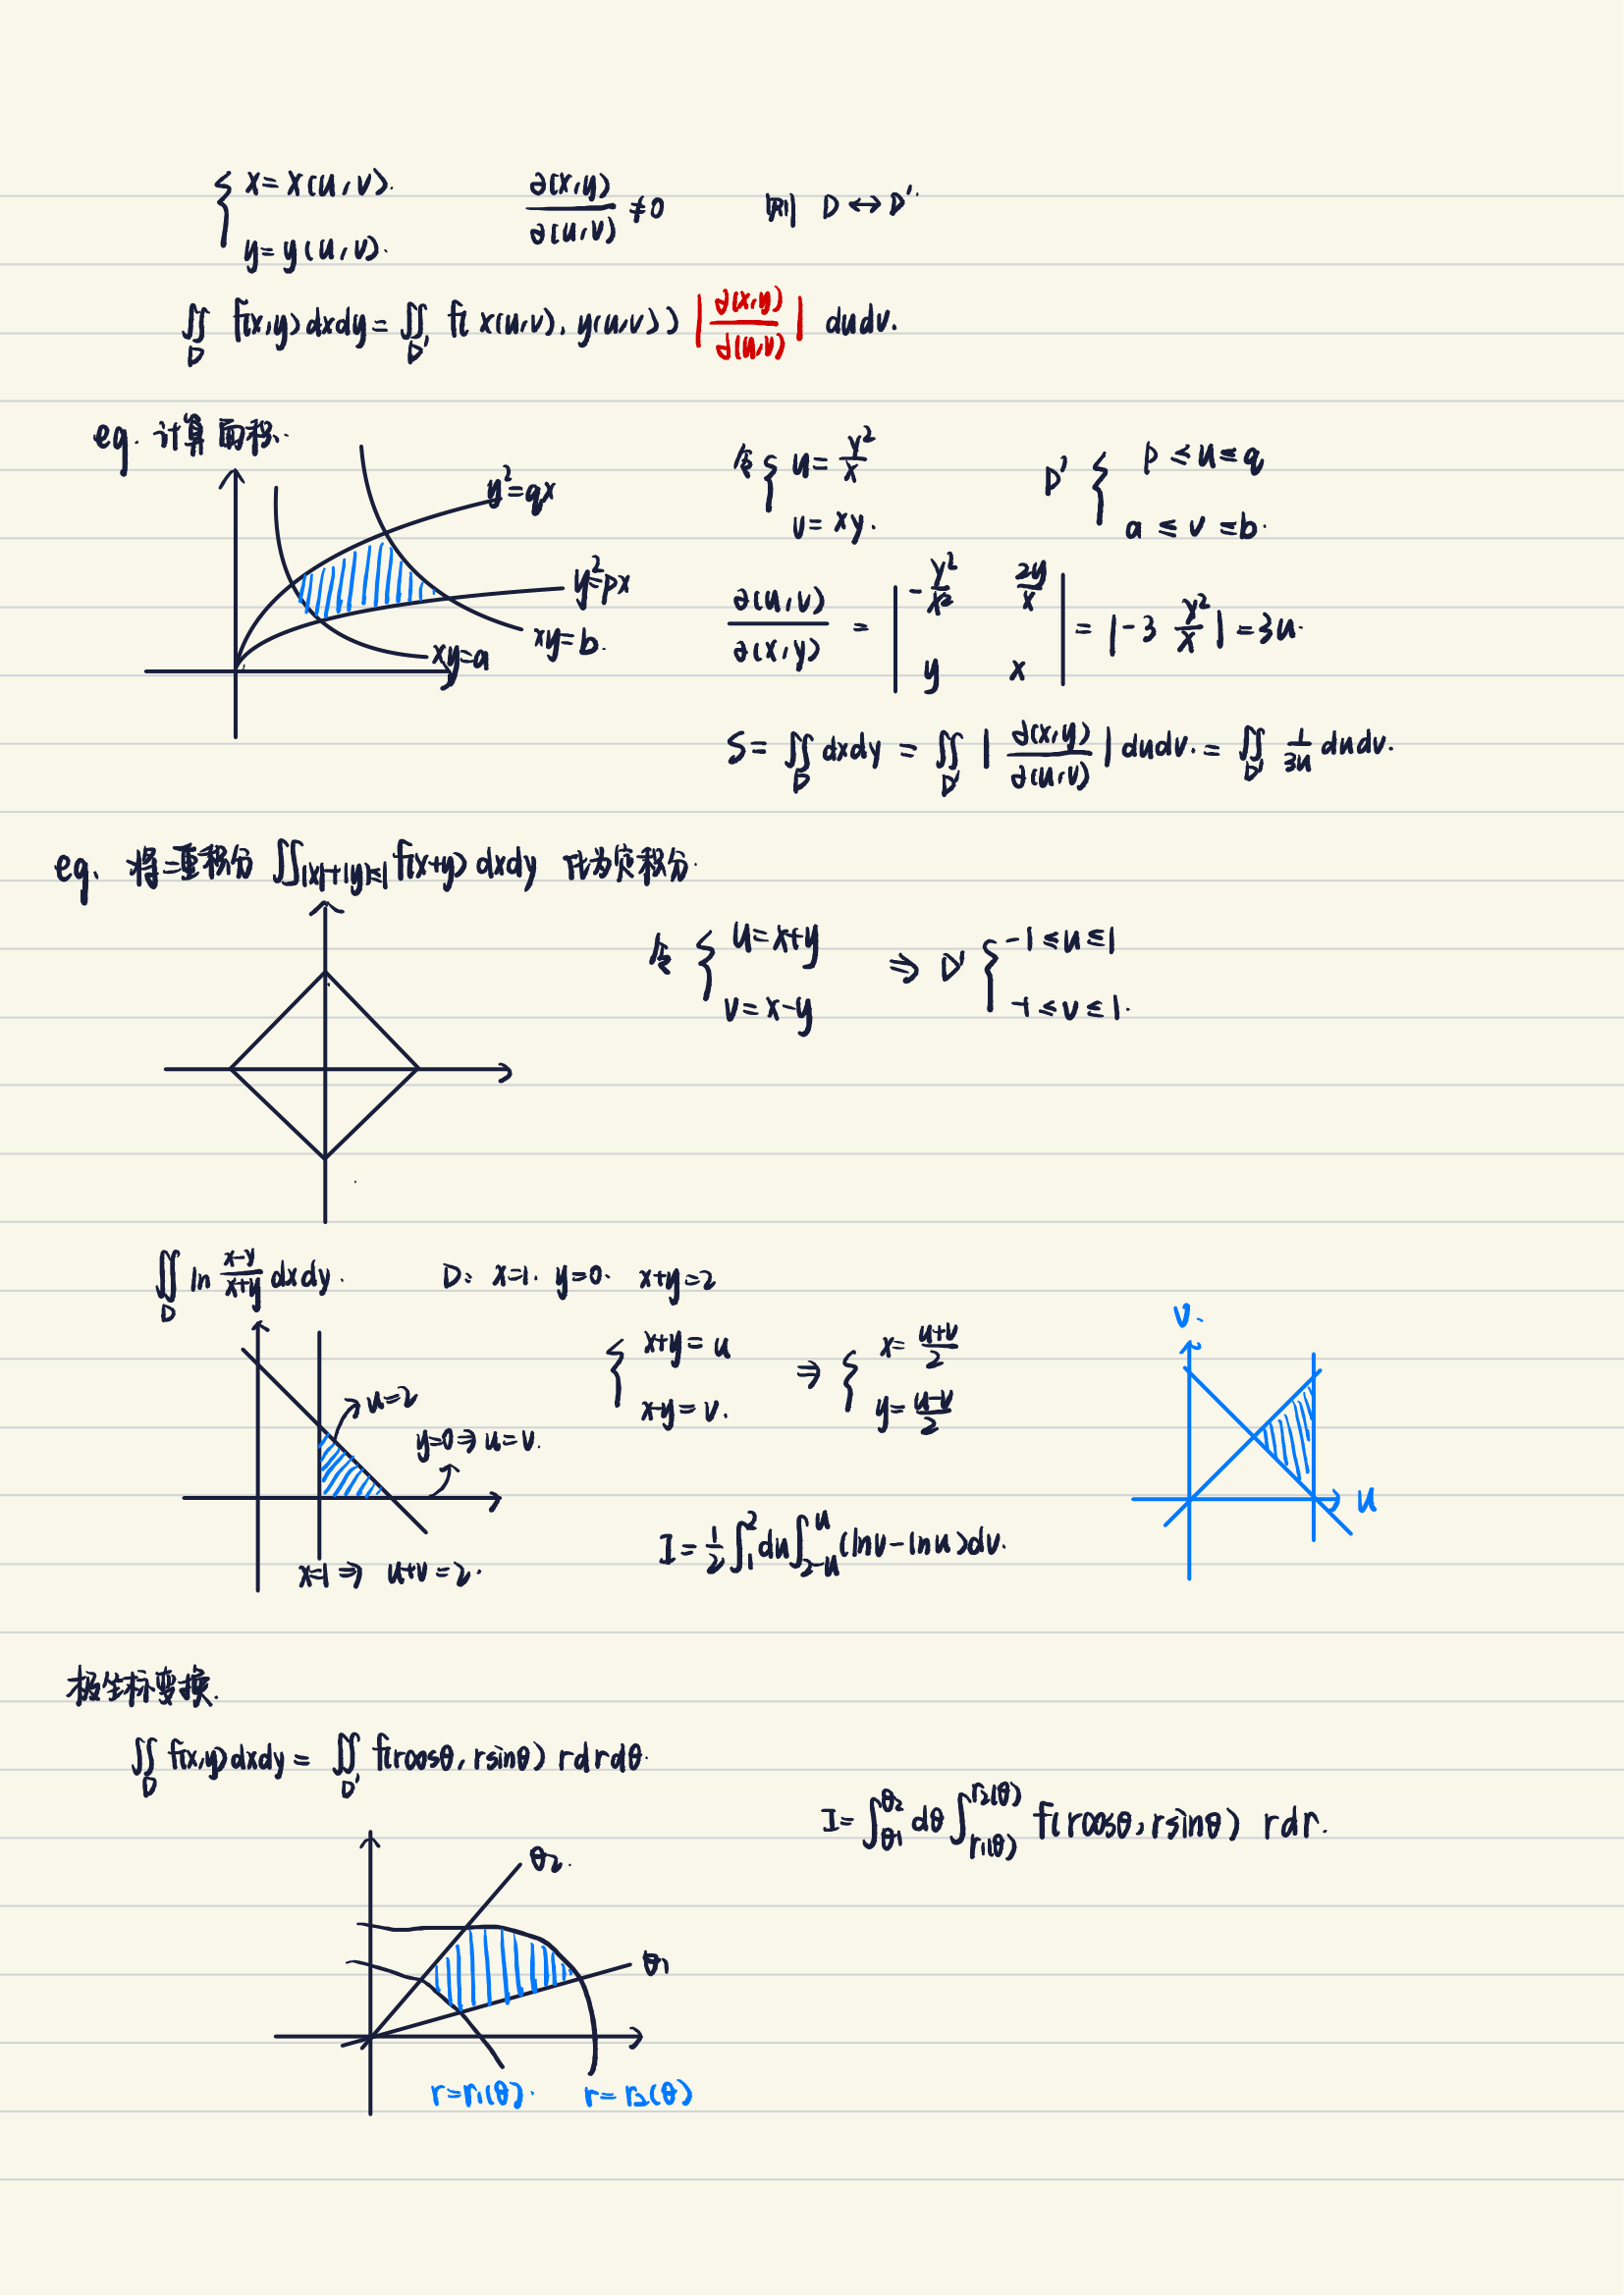 { x = x(u,v). y = y(u,v). ∂(x,y)/∂(u,v) ≠ 0 则 D ↔ D'.
∬_D f(x,y)dxdy = ∬_D' f( x(u,v), y(u,v) ) |∂(x,y)/∂(u,v)| dudv.
eg. 计算面积.
y²=qx
y²=px
xy=b.
xy=a
令 { u = y²/x v = xy. D' { p ≤ u ≤ q a ≤ v ≤ b.
∂(u,v)/∂(x,y) = | -y²/x² 2y/x y x | = |-3 y²/x| = 3u.
S = ∬_D dxdy = ∬_D' |∂(x,y)/∂(u,v)| dudv. = ∬_D' 1/3u dudv.
eg. 将二重积分 ∬_|x|+|y|≤1 f(x+y) dxdy 化为定积分.
令 { u = x+y v = x-y ⇒ D' { -1 ≤ u ≤ 1 -1 ≤ v ≤ 1.
∬_D ln (x-y)/(x+y) dxdy. D: x=1. y=0. x+y=2
u=2
y=0 ⇒ u=v.
x=1 ⇒ u+v=2.
{ x+y = u x-y = v. ⇒ { x = (u+v)/2 y = (u-v)/2
v.
u
I = 1/2 ∫_1^2 du ∫_{2-u}^u (lnv - lnu)dv.
极坐标变换.
∬_D f(x,y)dxdy = ∬_D' f(rcosθ, rsinθ) rdrdθ.
I = ∫_θ1^θ2 dθ ∫_{r1(θ)}^{r2(θ)} f(rcosθ, rsinθ) rdr.
θ2.
θ1
r=r1(θ). r=r2(θ)